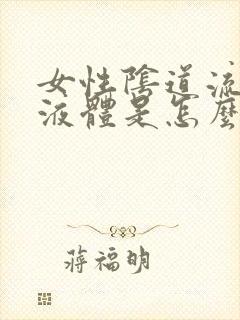 女性陰道流
液體是怎麼
蔣福明